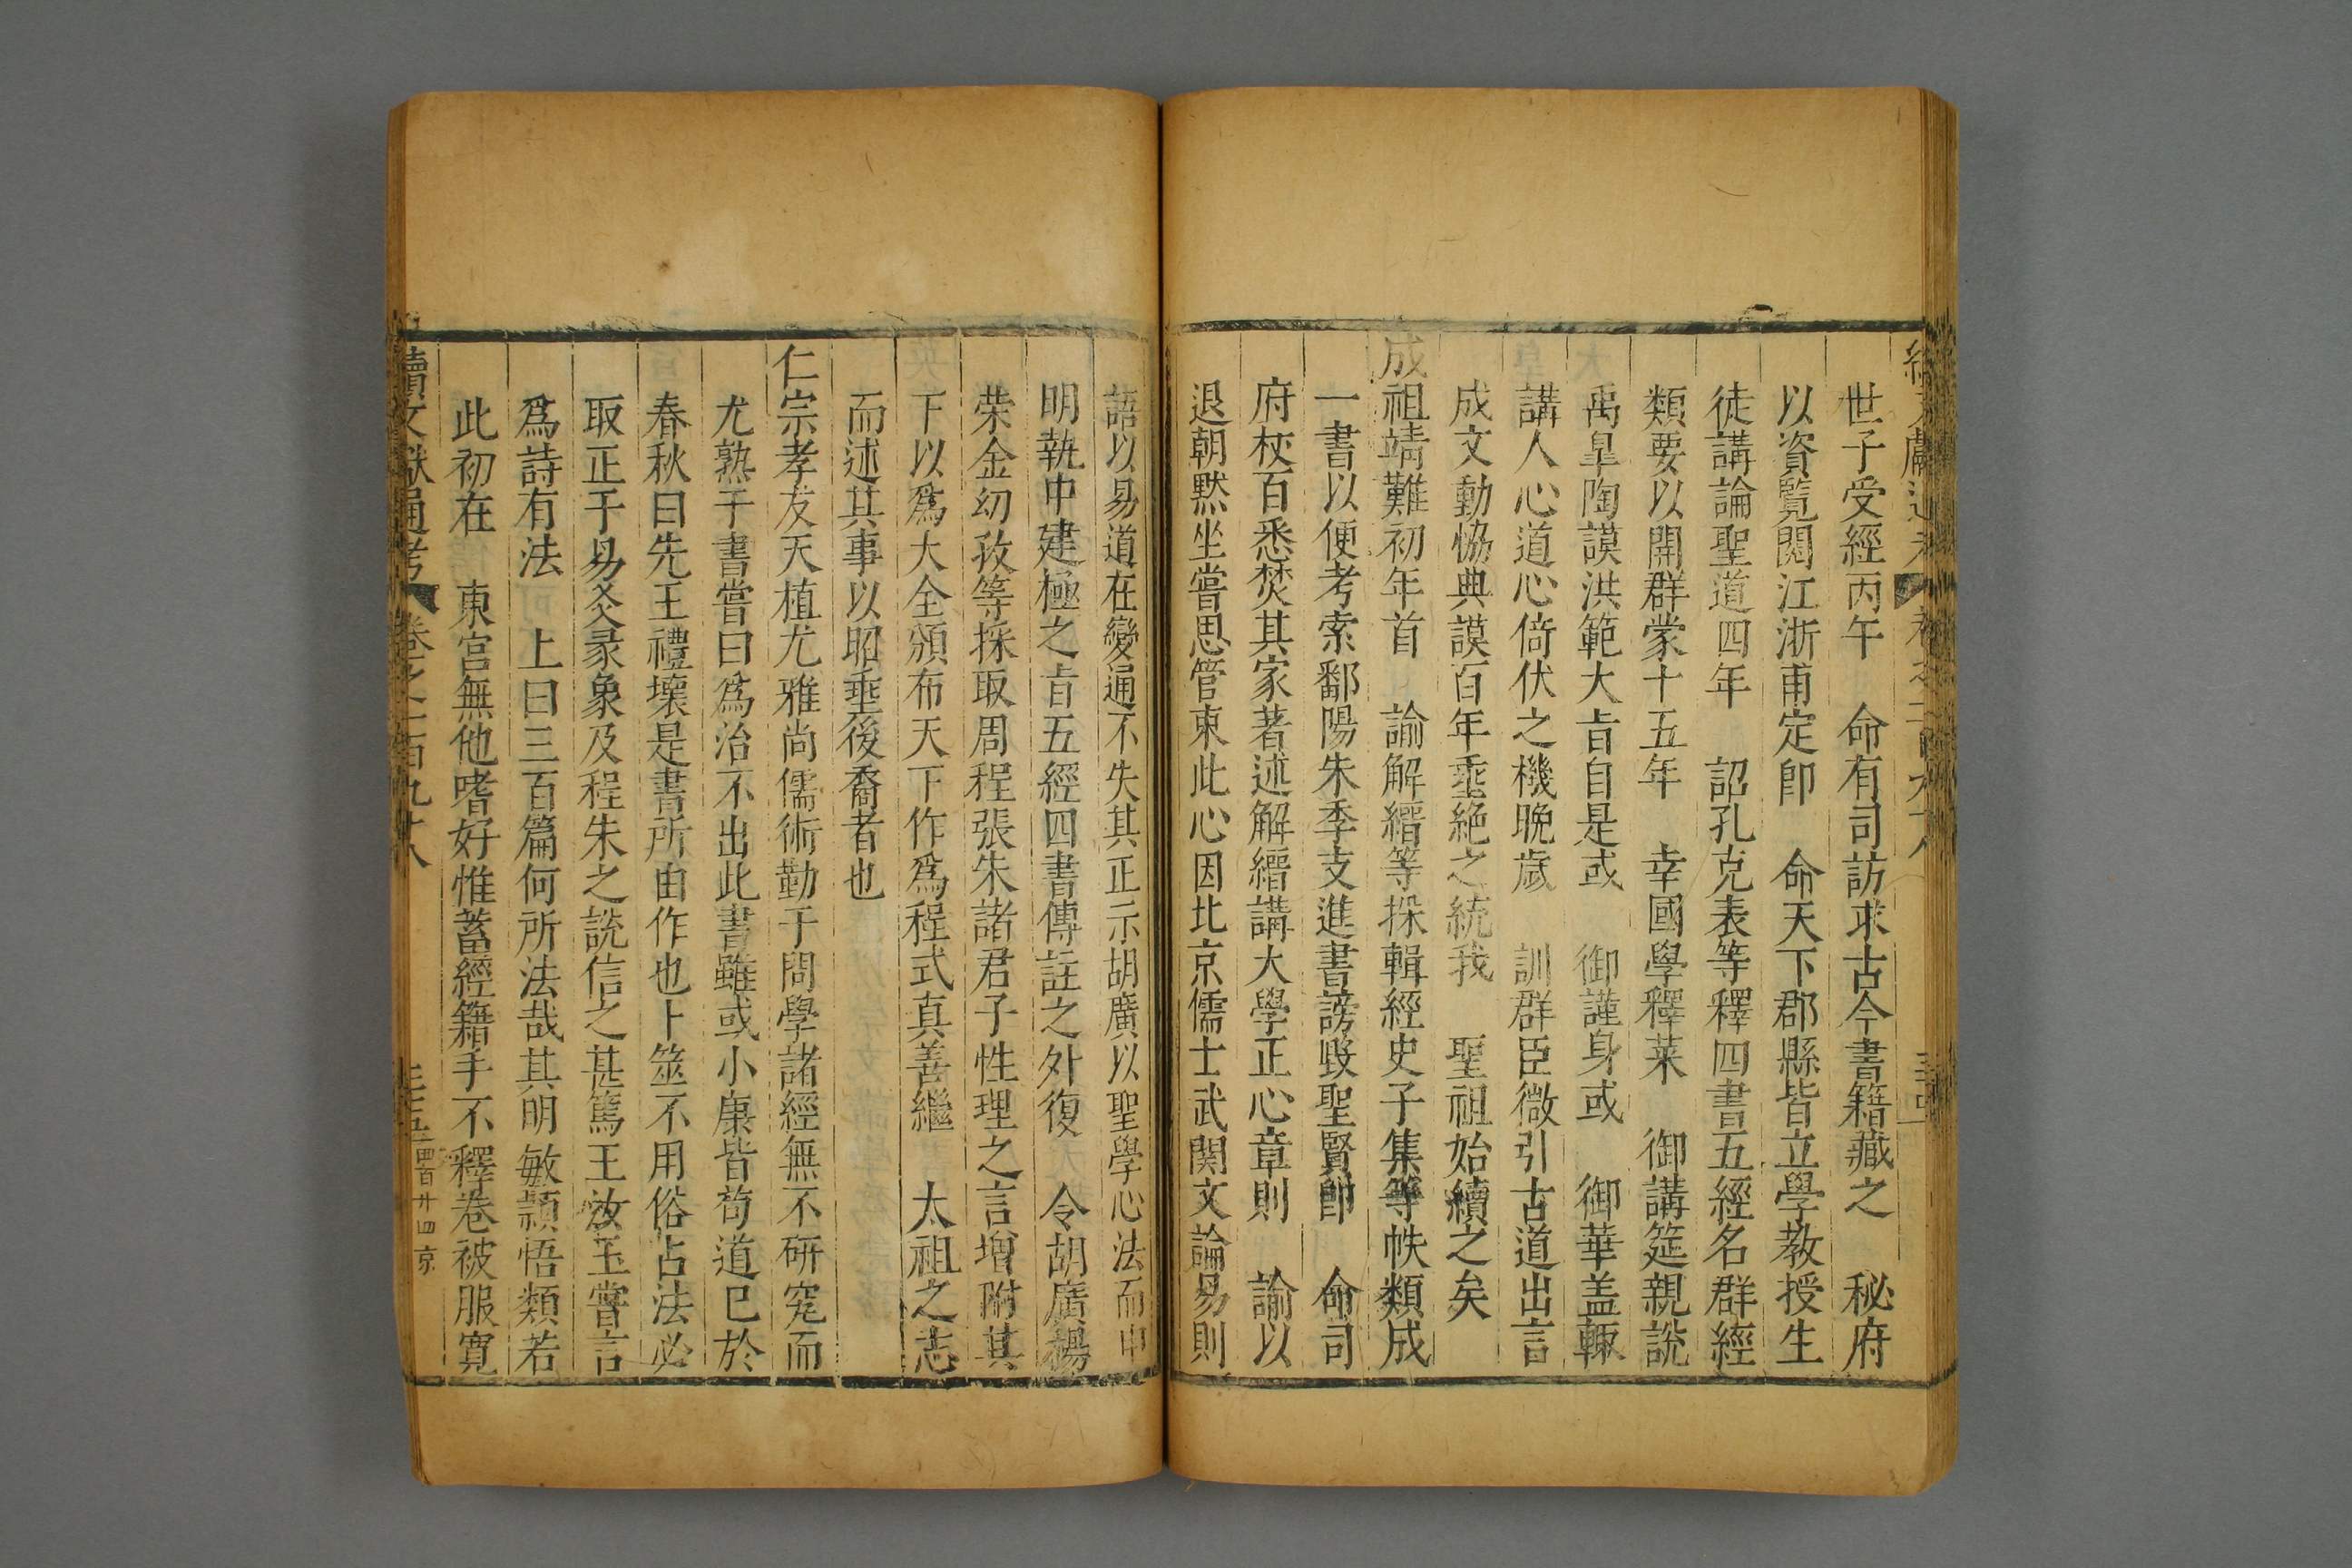 世子受經丙午　命有司訪求古今書籍藏之　秘府
以資覧閱江浙甫定卽　命天下郡縣皆立學教授生
徒講論聖道四年　詔孔克表等釋四書五經名群經
類要以開群蒙十五年　幸國學釋菜　御講筵親說
禹臯陶謨洪範大㫖自是或　御謹身或　御華盖輙
講人心道心倚伏之機晩歲　訓群臣微引古道出言
成文動恊典謨百年埀絶之統我　聖祖始續之矣
成祖靖難初年首　諭解縉等採輯經史子集等帙類成
一書以便考索鄱陽朱季支進書謗毁聖賢卽　命司
府杖百悉焚其家著述解縉講大學正心章則　諭以
退朝黙坐嘗思管束此心因北京儒士武関文論易則
語以易道在變通不失其正示胡廣以聖學心法而申
明執中建極之㫖五經四書傳註之外復　令胡廣楊
荣金幼孜等採取周程張朱諸君子性理之言增附其
下以爲大全頒布天下作爲程式真善繼　太祖之志
而述其事以昭埀後裔者也
仁宗孝友天植尤雅尚儒術勤于問學諸經無不研究而
尤熟于書嘗曰爲治不出此書雖或小康皆苟道已於
春秋曰先王禮壞是書所由作也卜筮不用俗占法必
取正于易爻彖象及程朱之說信之甚篤王汝玉嘗言
爲詩有法　上曰三百篇何所法哉其明敏頴悟類若
此初在　東宫無他嗜好惟蓄經籍手不釋卷被服寛
續文獻通考　卷之一百九十八　三十五　四百廿四　京